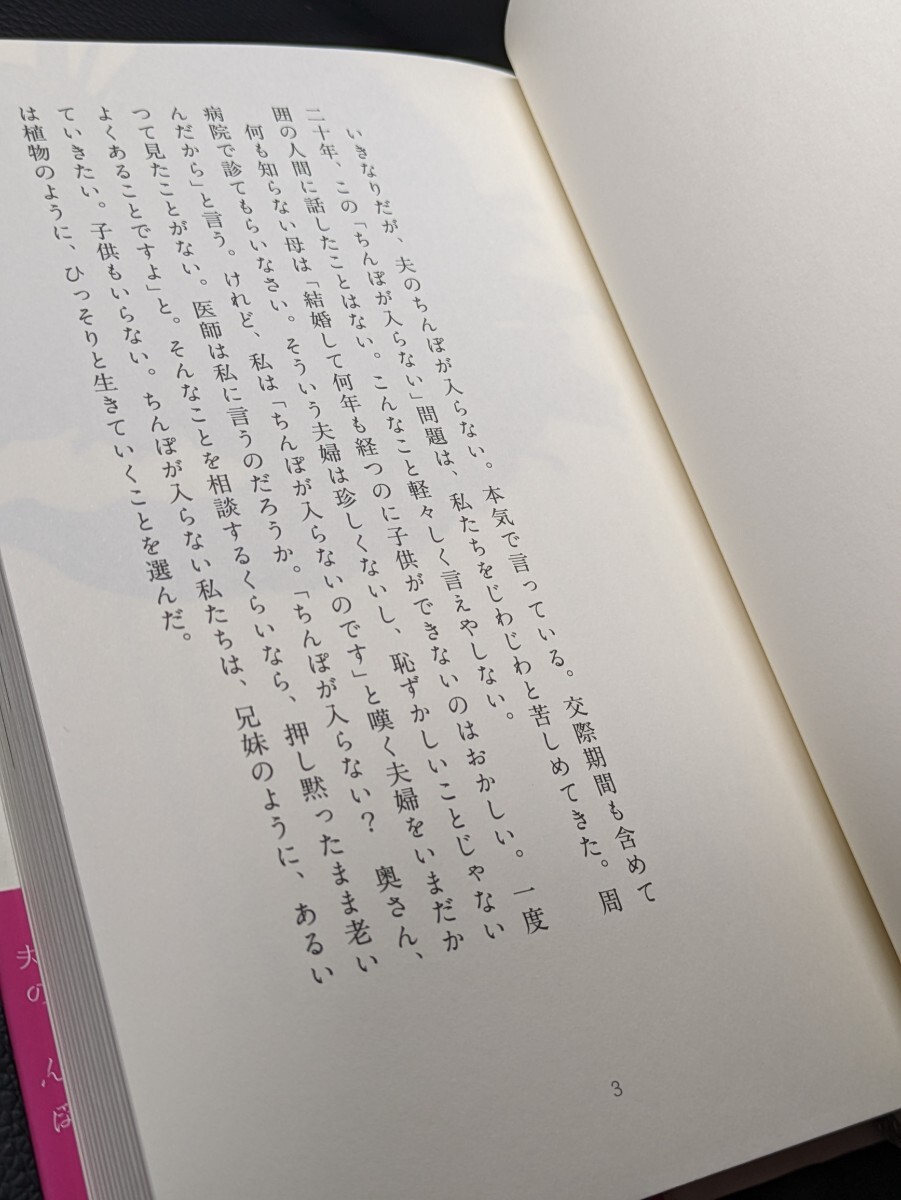 いきなりだが、夫のちんぽが入らない。本気で言っている。交際期間も含めて
二十年、この「ちんぽが入らない」問題は、私たちをじわじわと苦しめてきた。周
囲の人間に話したことはない。こんなこと軽々しく言えやしない。
何も知らない母は「結婚して何年も経つのに子供ができないのはおかしい。一度
病院で診てもらいなさい。そういう夫婦は珍しくないし、恥ずかしいことじゃない
んだから」と言う。けれど、私は「ちんぽが入らないのです」と嘆く夫婦をいまだか
つて見たことがない。医師は私に言うのだろうか。「ちんぽが入らない？　奥さん、
よくあることですよ」と。そんなことを相談するくらいなら、押し黙ったまま老い
ていきたい。子供もいらない。ちんぽが入らない私たちは、兄妹のように、あるい
は植物のように、ひっそりと生きていくことを選んだ。
3
夫の
んぽ